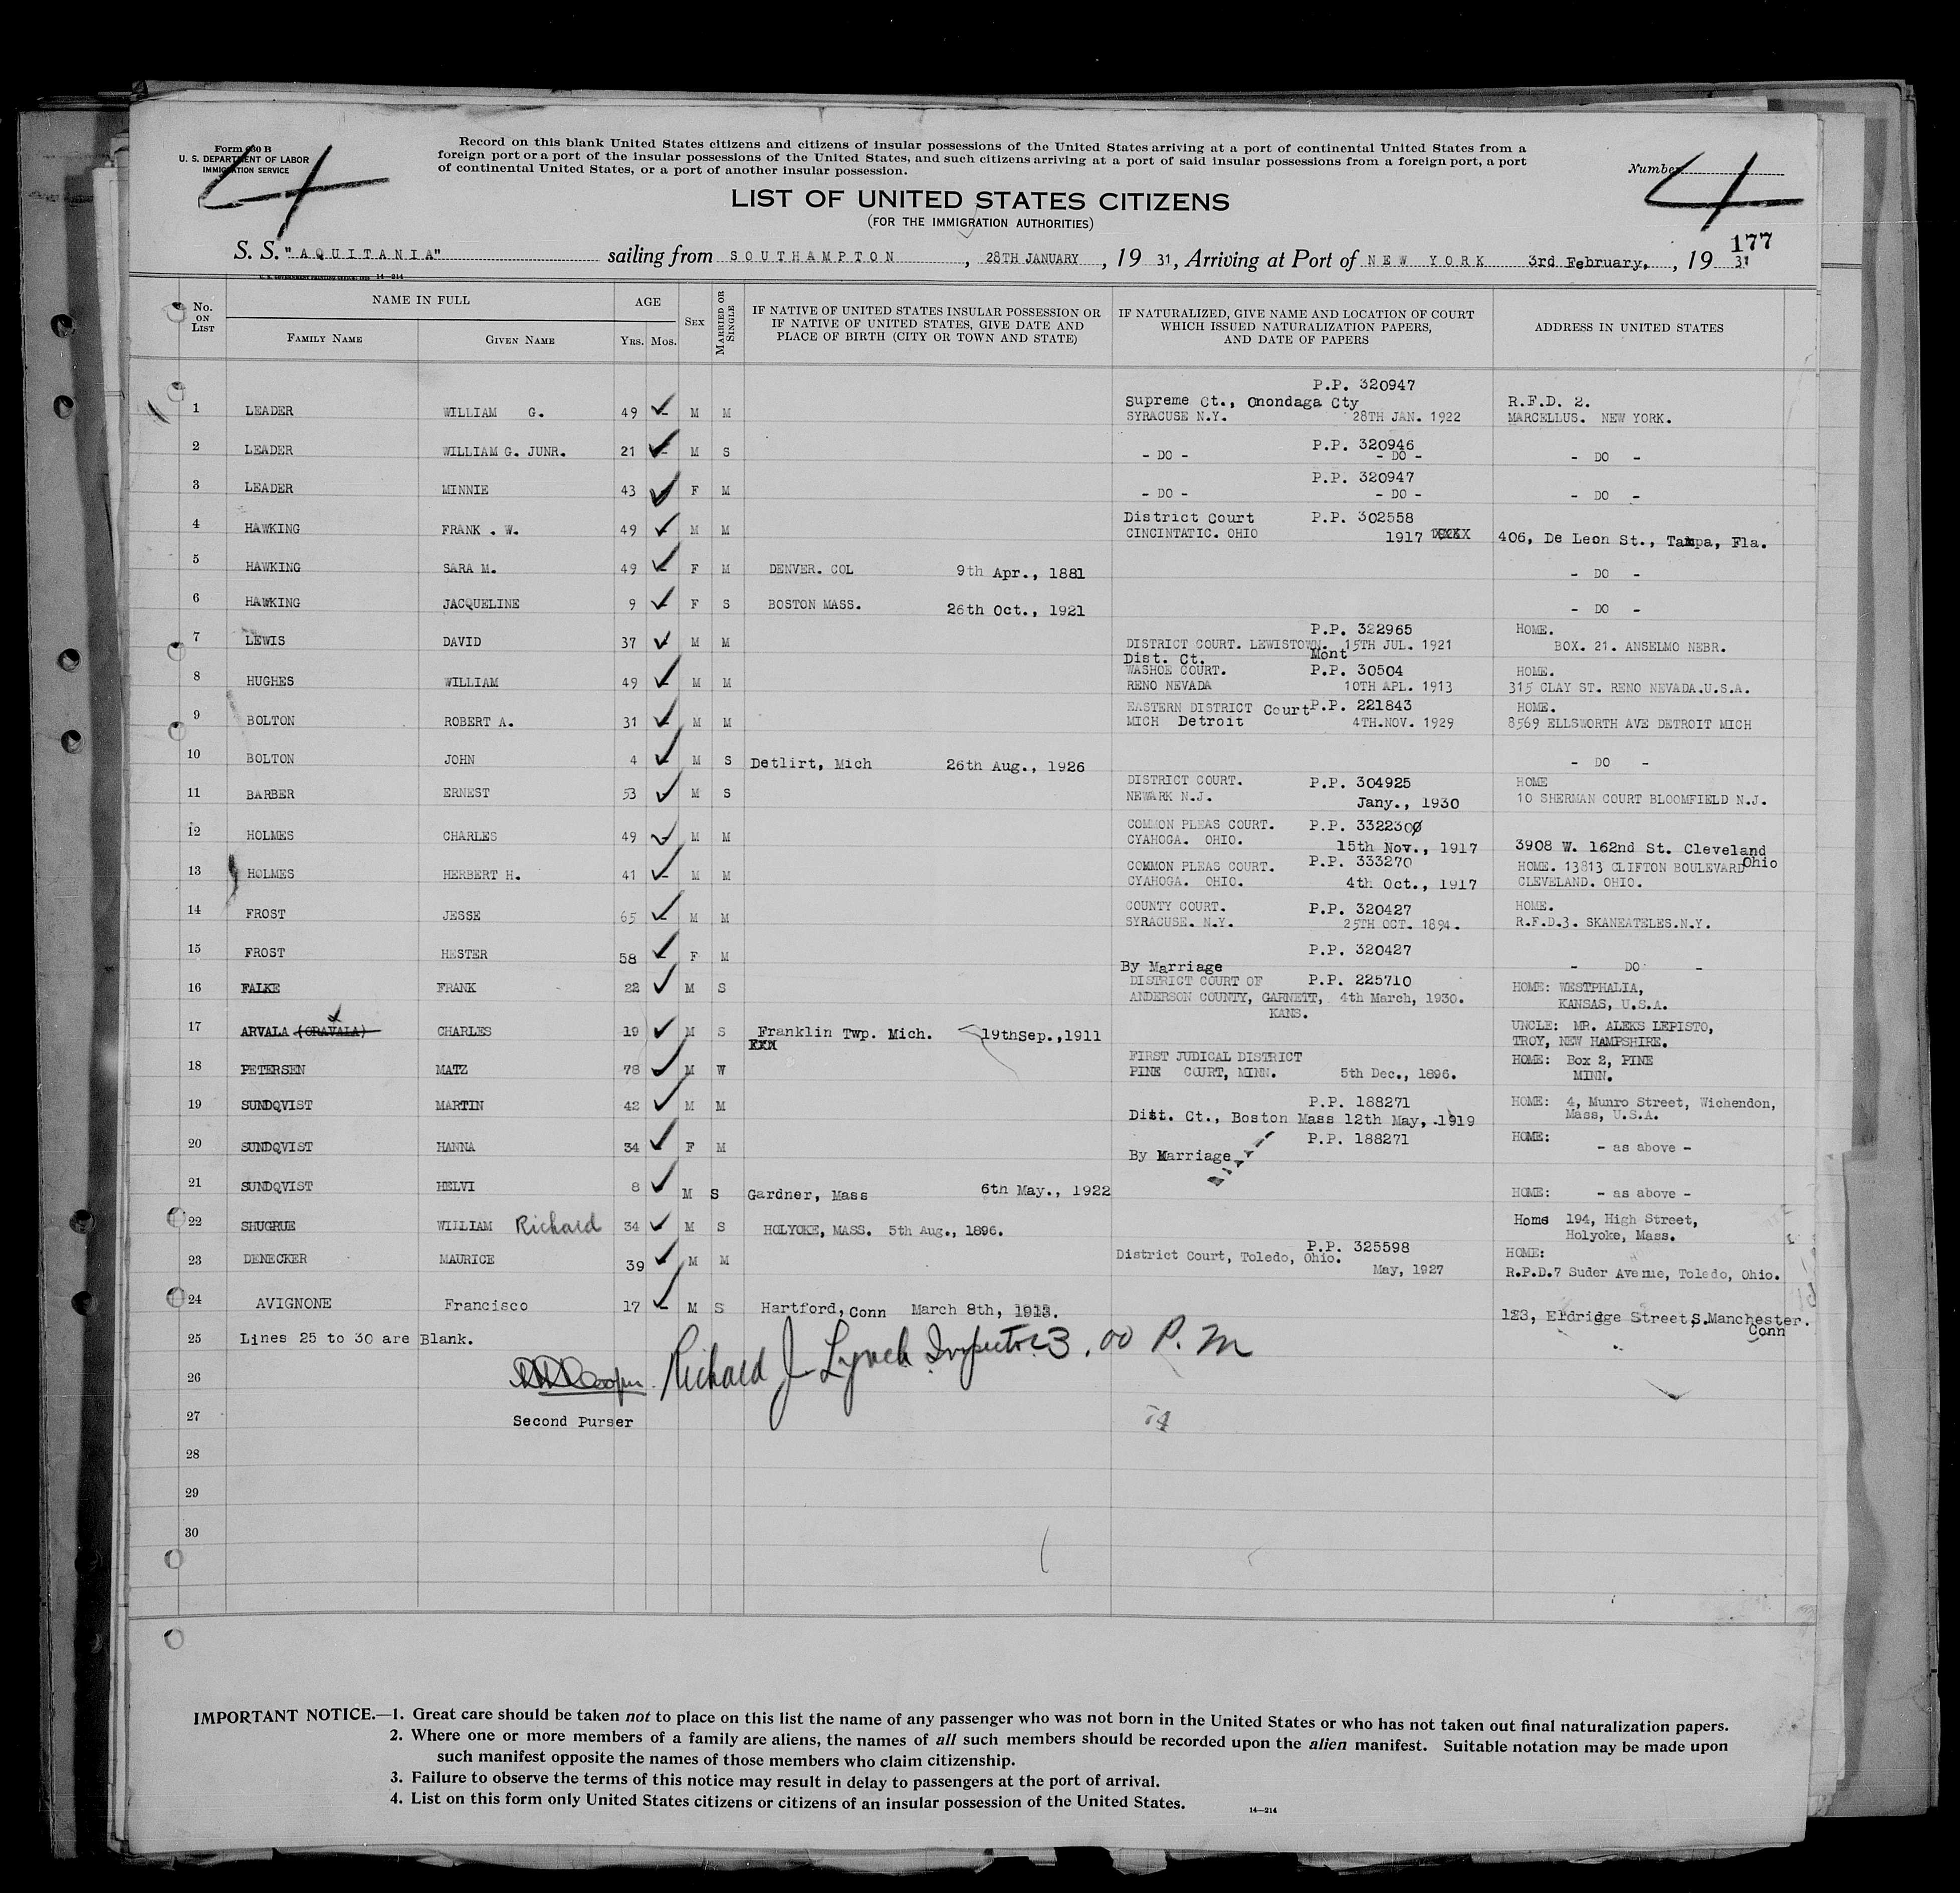 Form 630 B
U. S. DEPARTMENT OF LABOR
IMMIGRATION SERVICE
Record on this blank United States citizens and citizens of insular possessions of the United States arriving at a port of continental United States from a
foreign port or a port of the insular possessions of the United States, and such citizens arriving at a port of said insular possessions from a foreign port, a port
of continental United States, or a port of another insular possession.
Number
4
4
LIST OF UNITED STATES CITIZENS
(FOR THE IMMIGRATION AUTHORITIES)
177
S. S. "AQUITANIA" sailing from SOUTHAMPTON, 28TH JANUARY, 19 31, Arriving at Port of NEW YORK 3rd February, , 19 31
14-214
No. ON LIST
NAME IN FULL
FAMILY NAME
GIVEN NAME
AGE
YRS. MOS.
SEX
MARRIED OR SINGLE
IF NATIVE OF UNITED STATES INSULAR POSSESSION OR
IF NATIVE OF UNITED STATES, GIVE DATE AND
PLACE OF BIRTH (CITY OR TOWN AND STATE)
IF NATURALIZED, GIVE NAME AND LOCATION OF COURT
WHICH ISSUED NATURALIZATION PAPERS,
AND DATE OF PAPERS
ADDRESS IN UNITED STATES
P.P. 320947
1 LEADER WILLIAM G. 49 M M Supreme Ct., Onondaga Cty R.F.D. 2.
SYRACUSE N.Y. 28TH JAN. 1922 MARCELLUS. NEW YORK.
P.P. 320946
2 LEADER WILLIAM G. JUNR. 21 M S - DO - - DO - - DO -
P.P. 320947
3 LEADER MINNIE 43 F M - DO - - DO - - DO -
District Court P.P. 302558
4 HAWKING FRANK . W. 49 M M CINCINTATIC. OHIO 1917 XXXX 406, De Leon St., Tampa, Fla.
5 HAWKING SARA M. 49 F M DENVER. COL 9th Apr., 1881 - DO -
6 HAWKING JACQUELINE 9 F S BOSTON MASS. 26th Oct., 1921 - DO -
P.P. 322965 HOME.
7 LEWIS DAVID 37 M M DISTRICT COURT. LEWISTOWN. 15TH JUL. 1921 BOX. 21. ANSELMO NEBR.
Mont
Dist. Ct.
WASHOE COURT. P.P. 30504 HOME.
8 HUGHES WILLIAM 49 M M RENO NEVADA 10TH APL. 1913 315 CLAY ST. RENO NEVADA.U.S.A.
EASTERN DISTRICT Court P.P. 221843 HOME.
9 BOLTON ROBERT A. 31 M M MICH Detroit 4TH.NOV. 1929 8569 ELLSWORTH AVE DETROIT MICH
10 BOLTON JOHN 4 M S Detlirt, Mich 26th Aug., 1926 - DO -
DISTRICT COURT. P.P. 304925 HOME
11 BARBER ERNEST 53 M S NEWARK N.J. Jany., 1930 10 SHERMAN COURT BLOOMFIELD N.J.
COMMON PLEAS COURT. P.P. 332230
12 HOLMES CHARLES 49 M M CYAHOGA. OHIO. 15th Nov., 1917 3908 W. 162nd St. Cleveland Ohio
COMMON PLEAS COURT. P.P. 333270 HOME. 13813 CLIFTON BOULEVARD
13 HOLMES HERBERT H. 41 M M CYAHOGA. OHIO. 4th Oct., 1917 CLEVELAND. OHIO.
COUNTY COURT. P.P. 320427 HOME.
14 FROST JESSE 65 M M SYRACUSE. N.Y. 25TH OCT. 1894. R.F.D.3. SKANEATELES.N.Y.
P.P. 320427
15 FROST HESTER 58 F M By Marriage - DO -
DISTRICT COURT OF P.P. 225710
16 FALKE FRANK 22 M S ANDERSON COUNTY, GARNETT, 4th March, 1930. HOME: WESTPHALIA,
KANS. KANSAS, U.S.A.
17 ARVALA (ORAVALA) CHARLES 19 M S Franklin Twp. Mich. 19thSep.,1911 UNCLE: MR. ALEKS LEPISTO,
XXX TROY, NEW HAMPSHIRE.
FIRST JUDICAL DISTRICT HOME: Box 2, PINE
18 PETERSEN MATZ 78 M W PINE COURT, MINN. 5th Dec., 1896. MINN.
P.P. 188271 HOME: 4, Munro Street, Wichendon,
19 SUNDQVIST MARTIN 42 M M Dist. Ct., Boston Mass 12th May, 1919 Mass, U.S.A.
P.P. 188271 HOME:
20 SUNDQVIST HANNA 34 F M By Marriage - as above -
21 SUNDQVIST HELVI 8 M S Gardner, Mass 6th May., 1922 HOME: - as above -
22 SHUGRUE WILLIAM Richard 34 M S HOLYOKE, MASS. 5th Aug., 1896. Home 194, High Street,
Holyoke, Mass.
P.P. 325598 HOME:
23 DENECKER MAURICE 39 M M District Court, Toledo, Ohio.
May, 1927 R.P.D.7 Suder Avenue, Toledo, Ohio.
24 AVIGNONE Francisco 17 M S Hartford, Conn March 8th, 1913. 123, Erdridge Street,S.Manchester.
Conn
25 Lines 25 to 30 are Blank.
26 Richard J Lynch Inspector 3.00 P.M
27 Second Purser 74
28
29
30
IMPORTANT NOTICE.—1. Great care should be taken not to place on this list the name of any passenger who was not born in the United States or who has not taken out final naturalization papers.
2. Where one or more members of a family are aliens, the names of all such members should be recorded upon the alien manifest. Suitable notation may be made upon
such manifest opposite the names of those members who claim citizenship.
3. Failure to observe the terms of this notice may result in delay to passengers at the port of arrival.
4. List on this form only United States citizens or citizens of an insular possession of the United States.
14—214